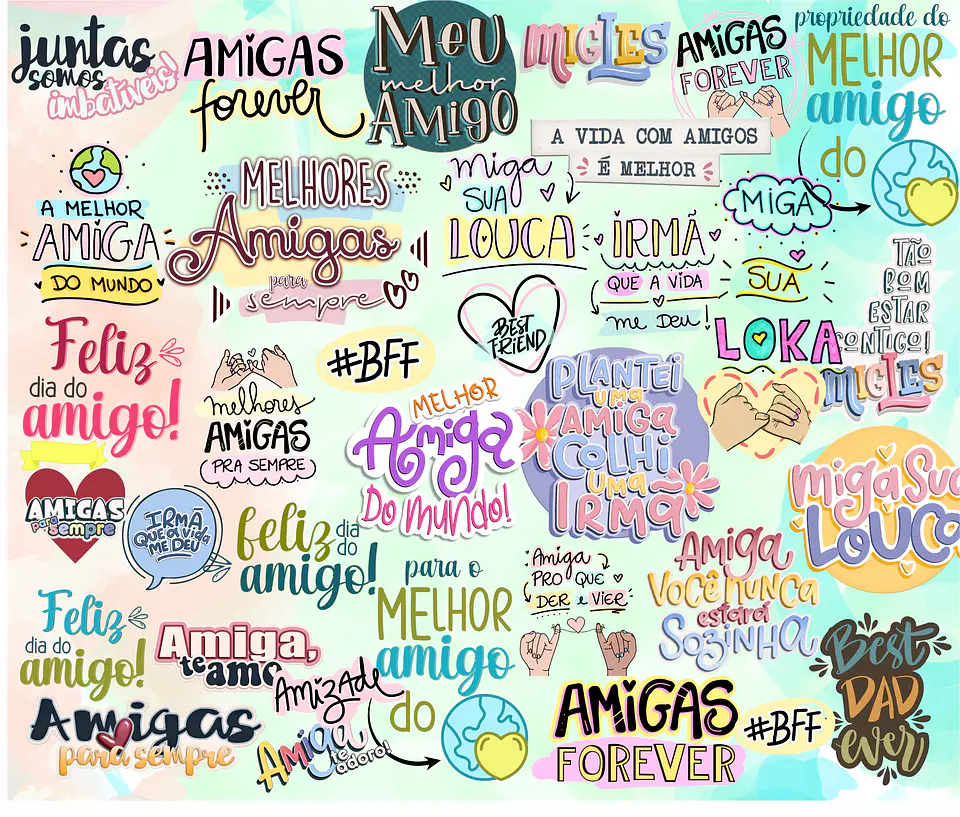 juntas
somos
imbatíveis!
AMIGAS
forever
MEU
melhor
AMIGO
MIGLES
AMIGAS
FOREVER
propriedade do
MELHOR
amigo
do
A VIDA COM AMIGOS
É MELHOR
A MELHOR
AMIGA
DO MUNDO
MELHORES
Amigas
para
sempre
miga
SUA
LOUCA
IRMÃ
QUE A VIDA
me Deu!
MIGA
SUA
LOKA
TÃO
BOM
ESTAR
CONTIGO!
MIGLES
BEST
FRIEND
Feliz
dia do
amigo!
melhores
AMIGAS
PRA SEMPRE
#BFF
MELHOR
Amiga
Do mundo!
PLANTEI
uma
AMIGA
COLHI
UMA
IRMÃ
miga Sua
LOUCA
AMIGAS
para
sempre
IRMÃ
QUE a vida
ME DEU
feliz dia
do
amigo!
Amiga
PRO QUE
DER e VIER
Amiga
Você nunca
estará
Sozinha
Feliz
dia do
amigo!
Amiga,
te amo
para o
MELHOR
amigo
do
Amizade
Amiga
te
adoro!
Amigas
para sempre
AMIGAS
FOREVER
#BFF
Best
DAD
ever